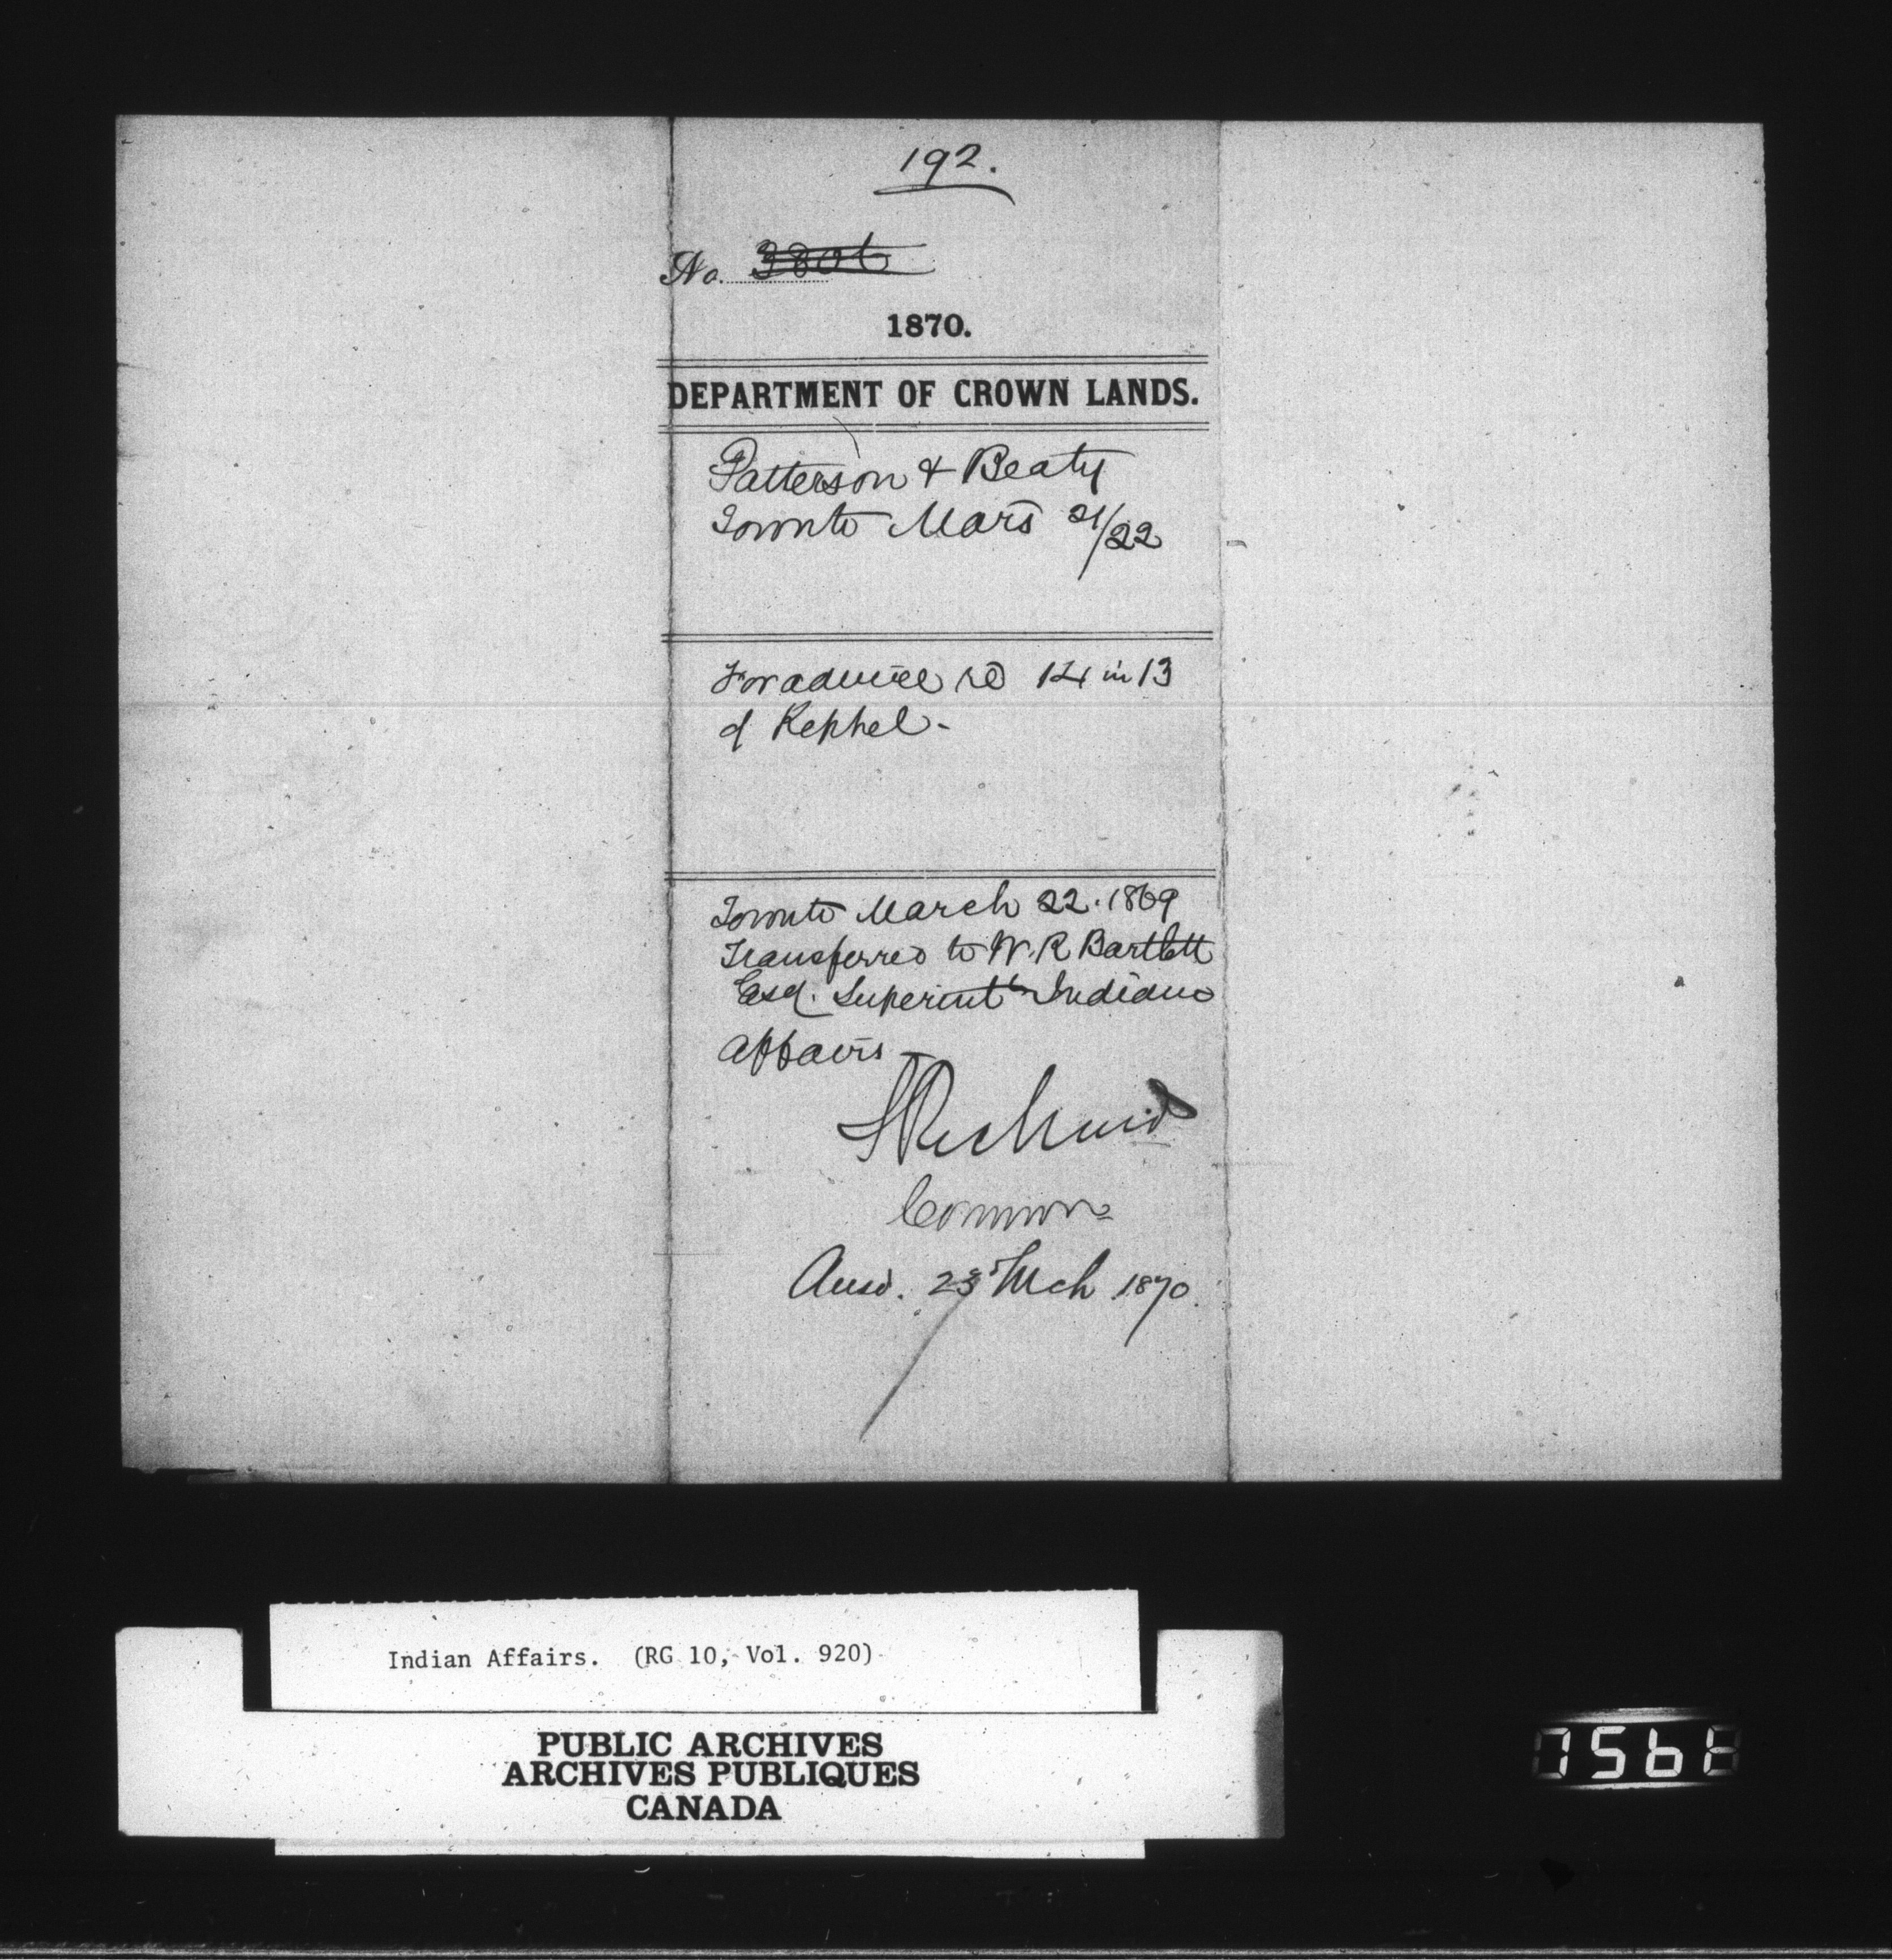 192.
No. 3806
1870.
DEPARTMENT OF CROWN LANDS.
Patterson & Beaty
Toronto Mars 21/22
For advice re 14 in 13
of Kephel -
Toronto March 22. 1869
Transferred to W. R Bartlett
Esq. Superintt Indians
Affairs
Commr
Ansd. 23d Mch 1870.
Indian Affairs. (RG 10, Vol. 920)
PUBLIC ARCHIVES
ARCHIVES PUBLIQUES
CANADA